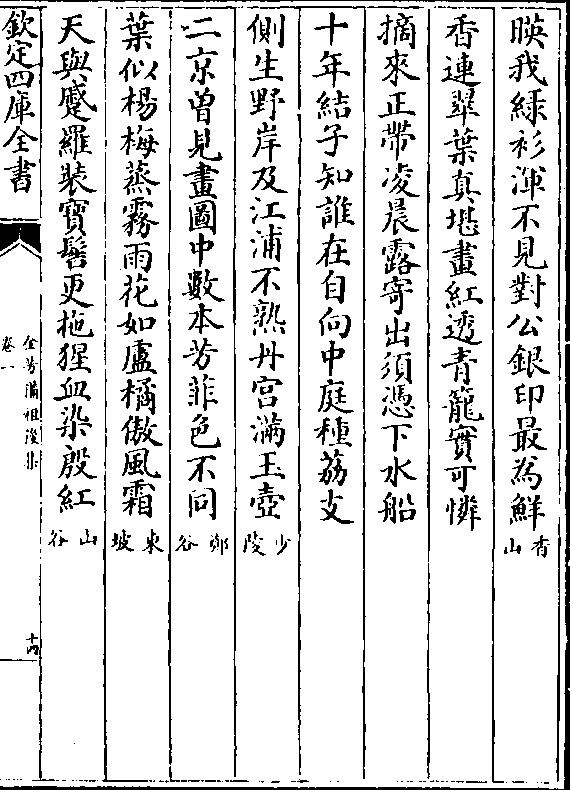 暎我緑衫渾不見對公銀印最為鮮香山
香連翠葉真堪畫紅透青籠實可憐
摘來正帶凌晨露寄出須憑下水船
十年結子知誰在自向中庭種荔支
側生野岸及江浦不熟丹宮滿玉壺少陵
二京曽見畫圖中數本芳菲色不同鄭谷
葉似楊梅蒸霧雨花如盧橘傲風霜東坡
天與蹙羅裝寶髻更拖猩血染殷紅山谷
欽定四庫全書
全芳備祖後集
卷一
十四